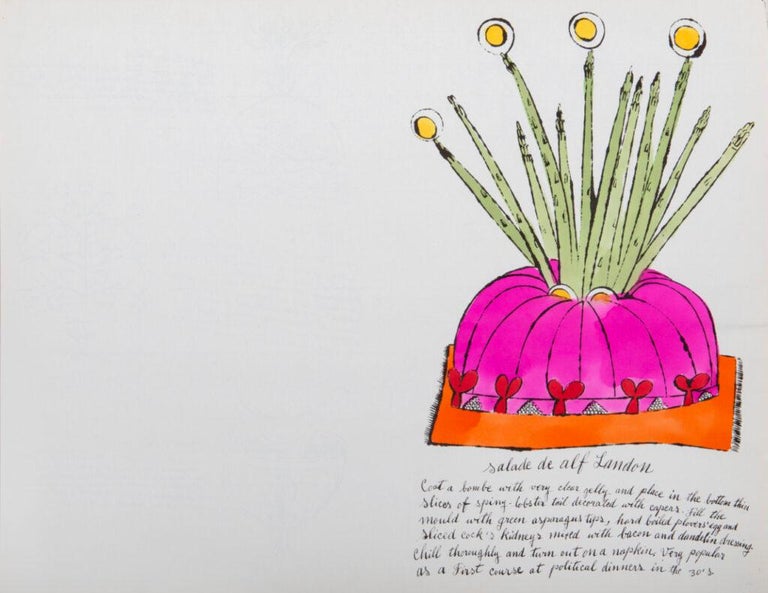 salade de alf Landon
Coat a bombe with very clear gelly and place in the bottom thin
slices of spiny-lobster tail decorated with capers. Fill the
mould with green asparagus tips, hard boiled plovers' egg and
sliced cock's kidneys mixed with bacon and dandelin dressing.
Chill thoroughly and turn out on a napkin. Very popular
as a First course at political dinners in the 30's